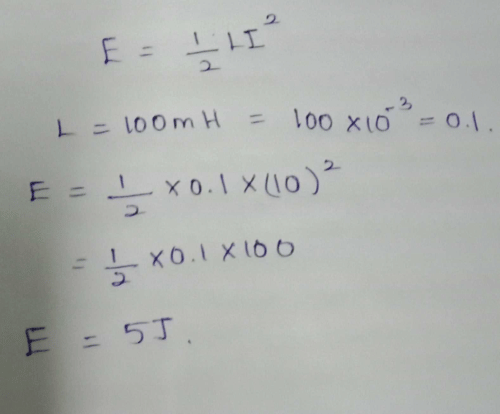 E = 1/2 LI²
L = 100mH = 100 ×10⁻³ = 0.1.
E = 1/2 × 0.1 × (10)²
= 1/2 × 0.1 × 100
E = 5J.